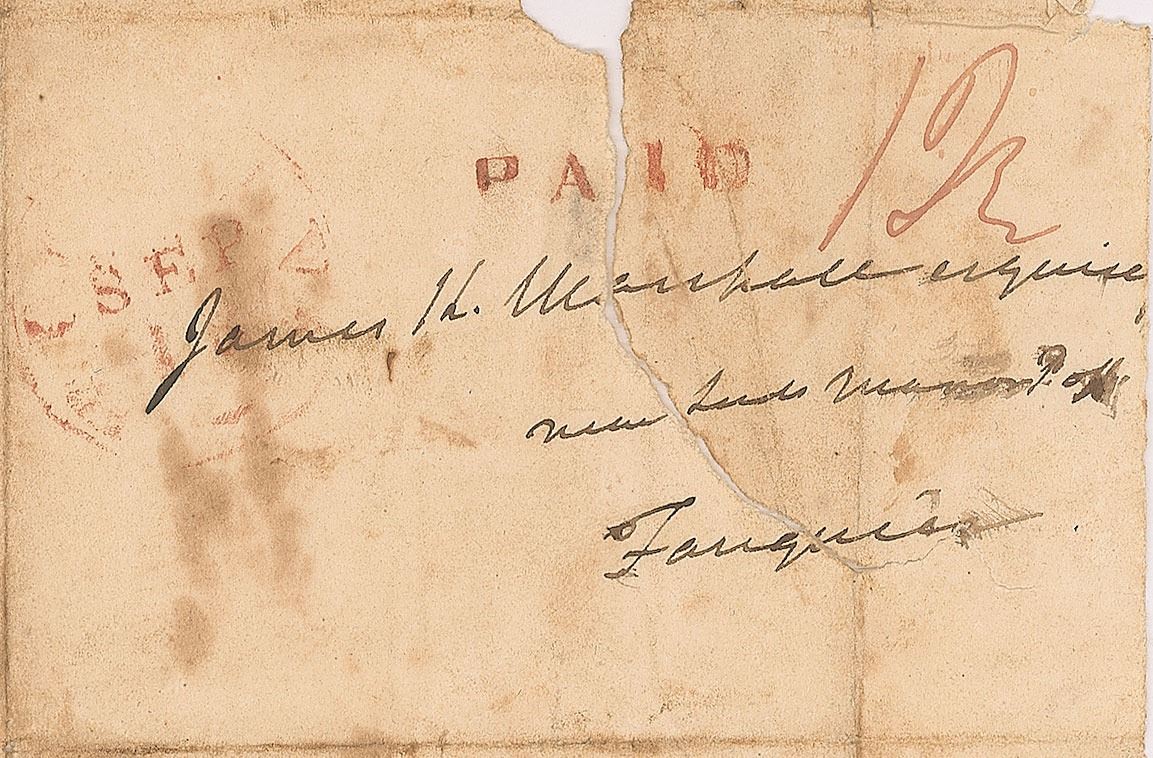 PAID
12½
SEP 4
James K. Marshall esquire
new Leeds Manor P. off
Fauquier